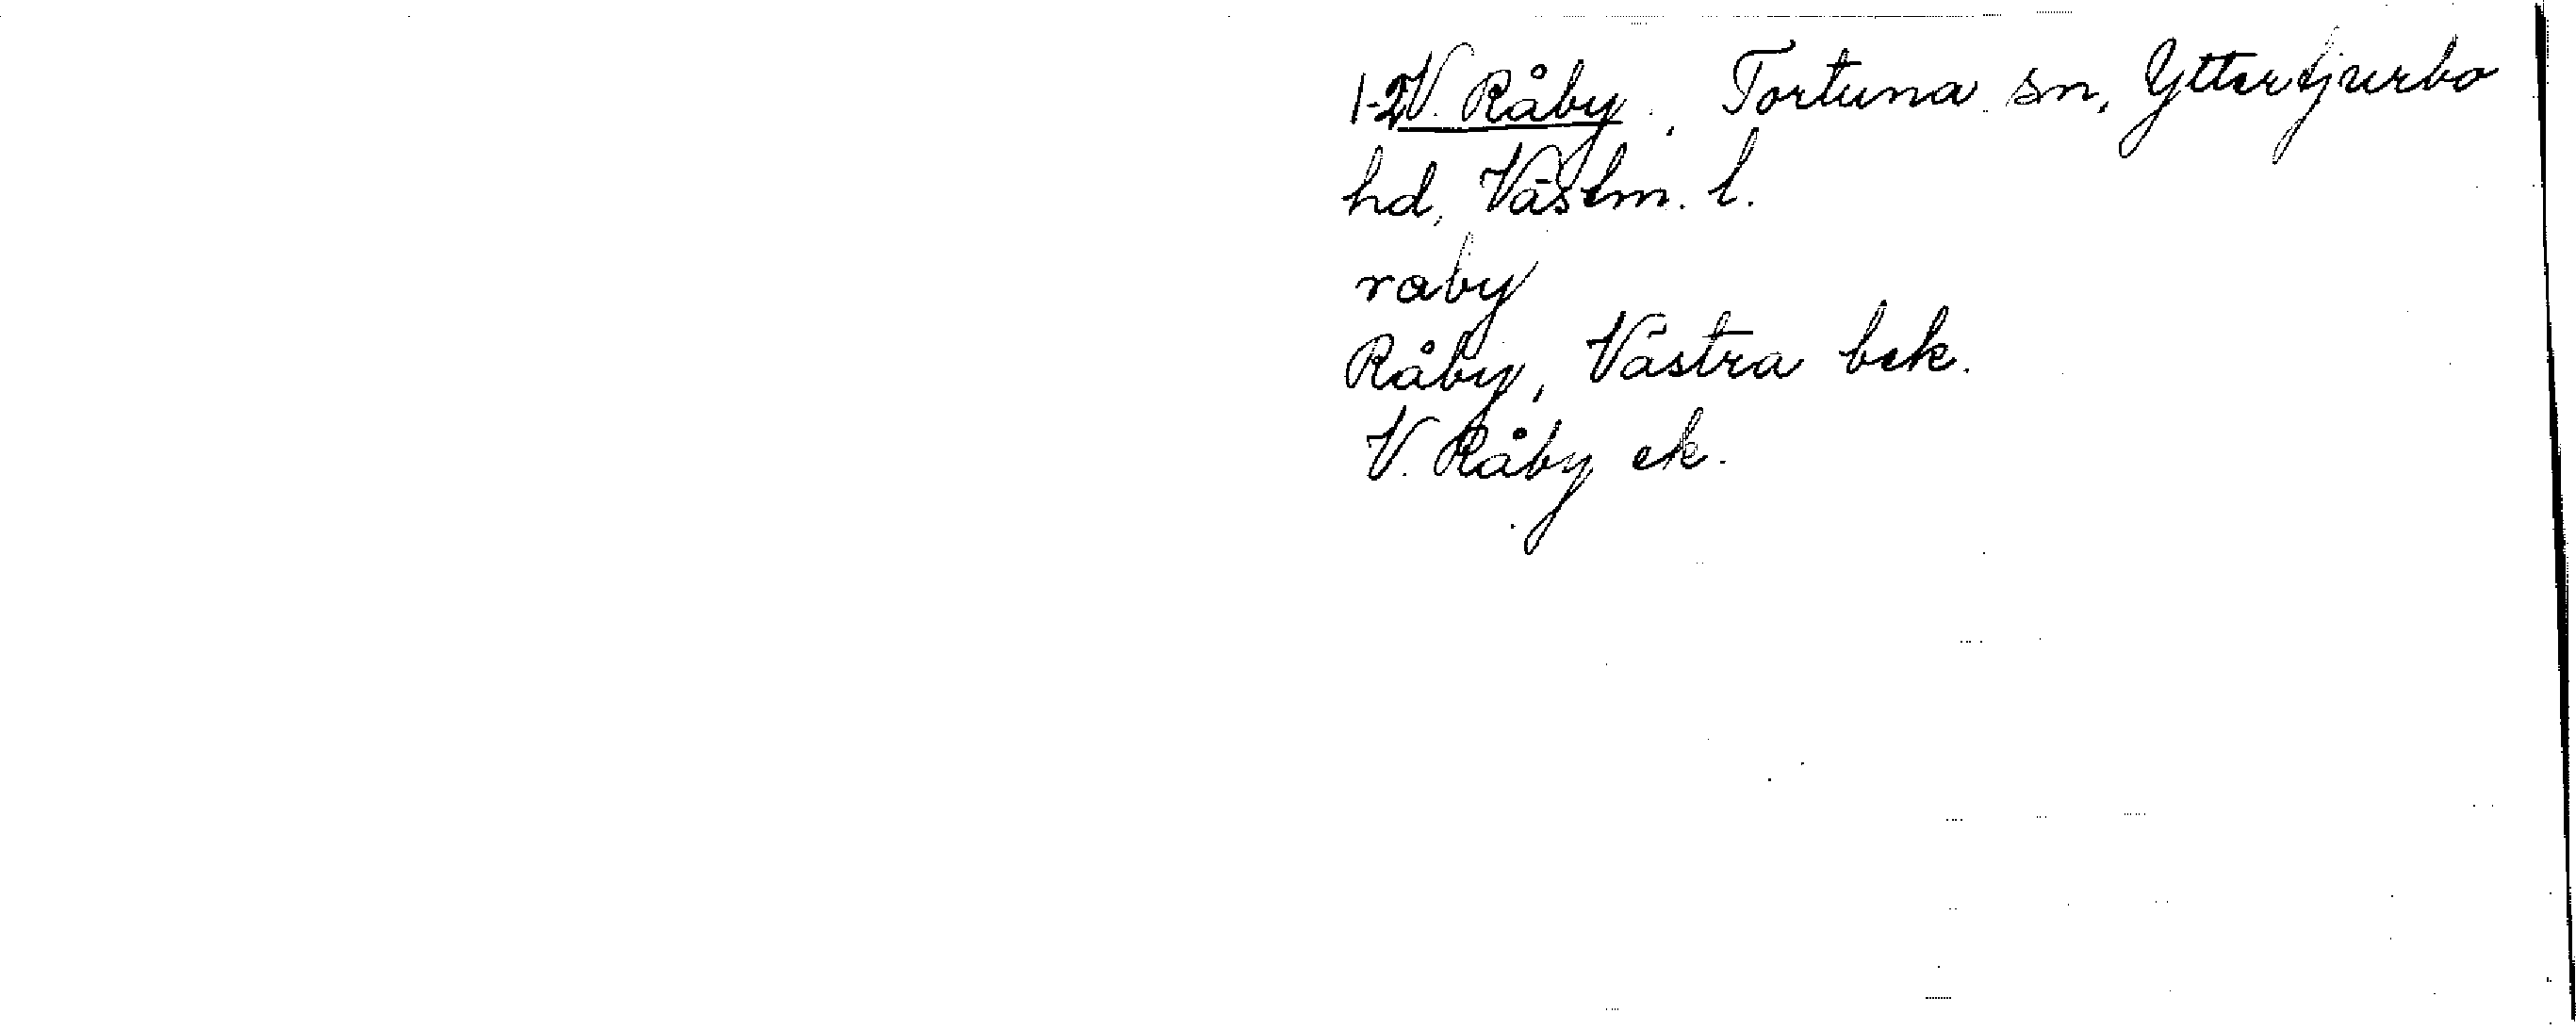 1-2 V. Råby, Tortuna sn, Yttertjurbo
hd, Västm. l.
raby
Råby, Västra bek.
V. Råby ek.